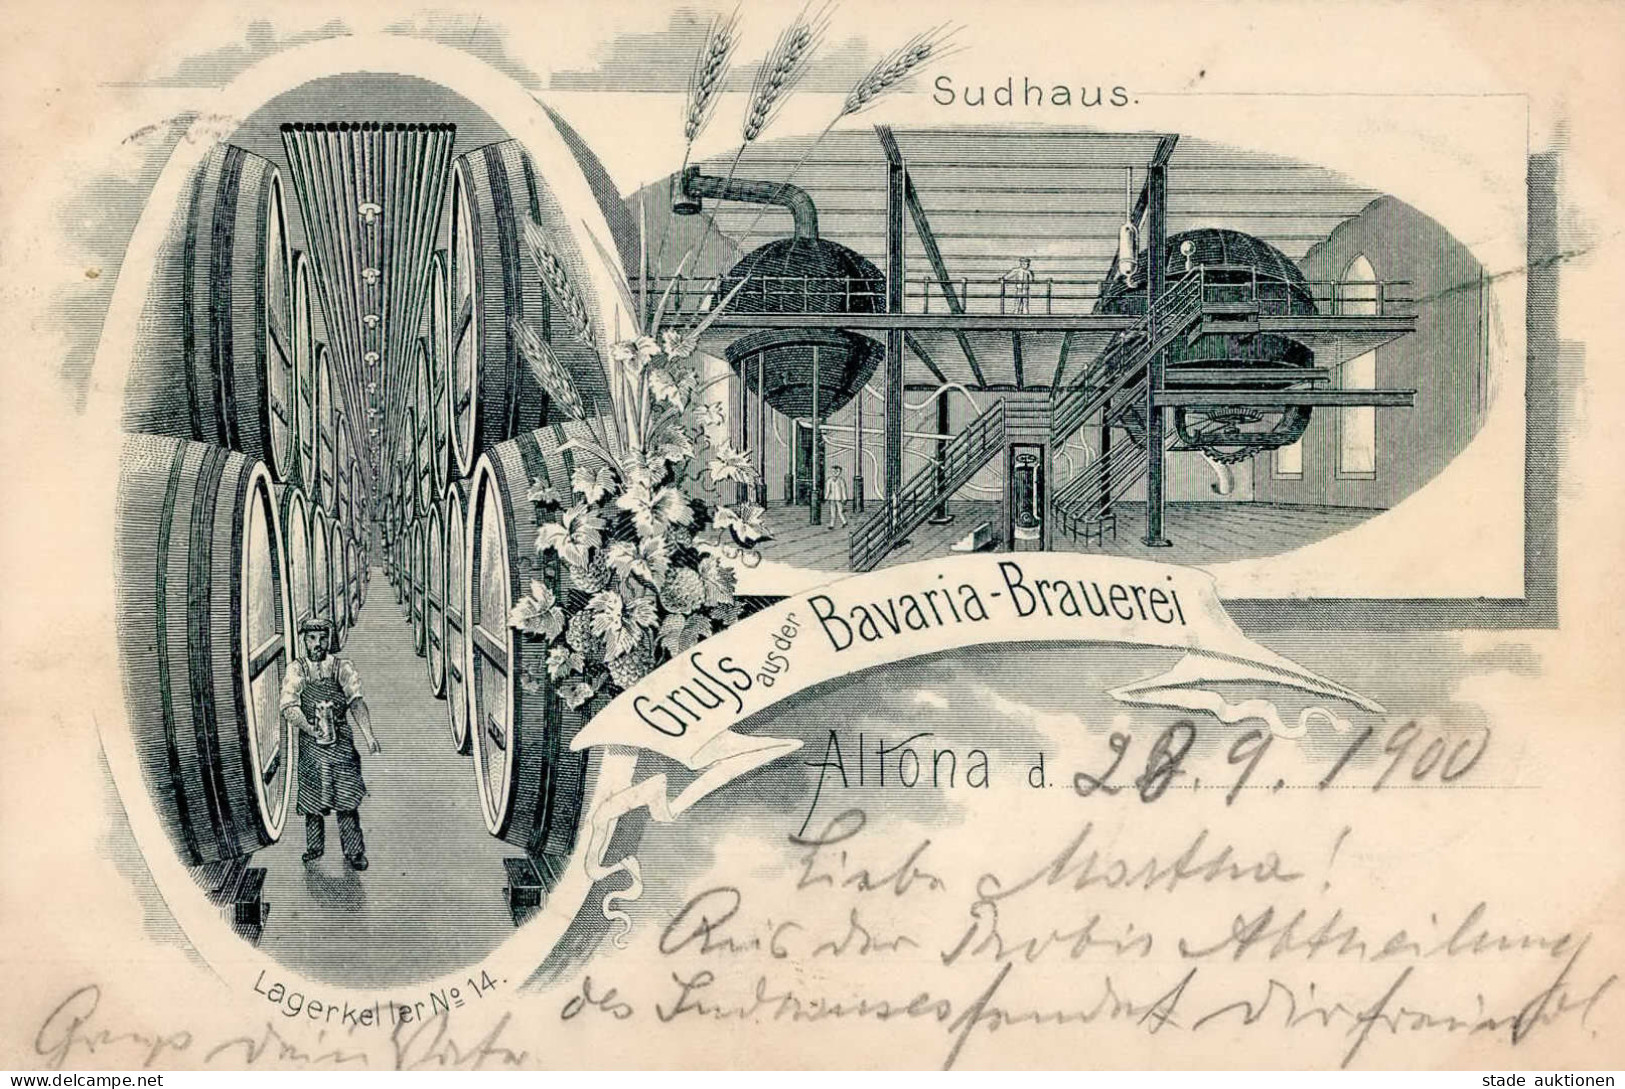 Sudhaus.
Gruſs aus der Bavaria-Brauerei
Altona d. 28.9.1900
Liebe Martha!
Aus der Probir Abtheilung
des Sudhauses sendet dir freundl.
Gruss dein Vater
Lagerkeller No 14.
stade auktionen